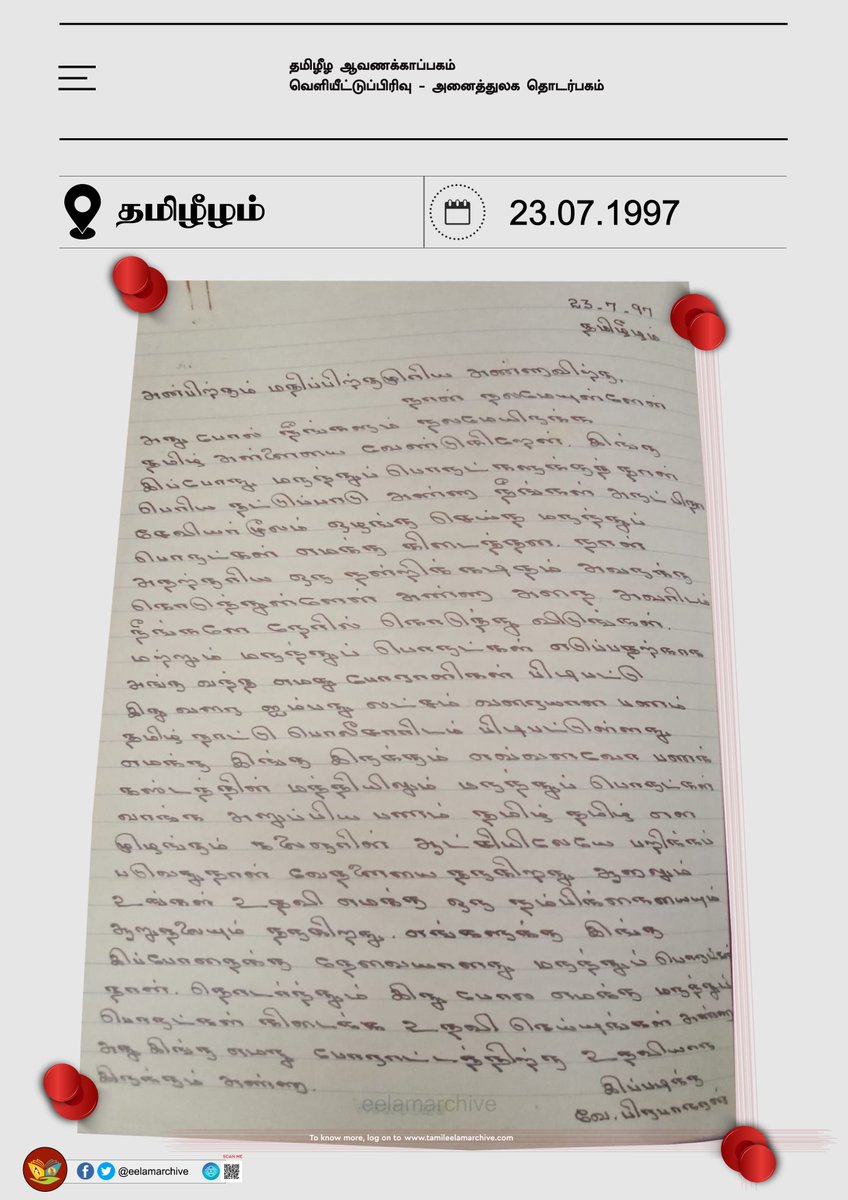 தமிழீழ ஆவணக்காப்பகம்
வெளியீட்டுப்பிரிவு - அனைத்துலக தொடர்பகம்
தமிழீழம்
23.07.1997
23-7-97
தமிழீழம்
அன்பிற்கும் மதிப்பிற்குமுரிய அண்ணாவிற்கு,
நான் நலமேயுள்ளேன்
அது போல் நீங்களும் நலமேயிருக்க
தமிழ் அன்னையை வேண்டுகிறேன். இங்கு
இப்போது மருந்துப் பொருட்களுக்குத்தான்
பெரிய தட்டுப்பாடு அண்ணா நீங்கள் அருட் பிதா
சேவியர் மூலம் ஒழுங்கு செய்த மருந்துப்
பொருட்கள் எமக்கு கிடைத்தன. நான்
அதற்குரிய ஒரு நன்றிக்கடிதம் அவருக்கு
கொடுத்துள்ளேன் அண்ணா அதை அவரிடம்
நீங்களே நேரில் கொடுத்து விடுங்கள்.
மற்றும் மருந்துப் பொருட்கள் எடுப்பதற்காக
அங்கு வந்த எமது போராளிகள் பிடிபட்டு
இது வரை ஐம்பது லட்சம் வரையான பணம்
தமிழ் நாட்டு பொலீசாரிடம் பிடிபட்டுள்ளது
எமக்கு இங்கு இருக்கும் எவ்வளவோ பணக்
கஸ்டத்தின் மத்தியிலும் மருந்துப் பொருட்கள்
வாங்க அனுப்பிய பணம் தமிழ் தமிழ் என
முழங்கும் கலைஞரின் ஆட்சியிலேயே பறிக்கப்
படுவதுதான் வேதனையை தருகிறது ஆனாலும்
உங்கள் உதவி எமக்கு ஒரு நம்பிக்கையையும்
ஆறுதலையும் தருகிறது. எங்களுக்கு இங்கு
இப்போதைக்கு தேவையானது மருந்துப் பொருட்கள்
தான். தொடர்ந்தும் இது போல எமக்கு மருந்துப்
பொருட்கள் கிடைக்க உதவி செய்யுங்கள் அண்ணா
அது இங்கு எமது போராட்டத்திற்கு உதவியாக
இருக்கும் அண்ணா.
இப்படிக்கு
வே. பிரபாகரன்
eelamarchive
To know more, log on to www.tamileelamarchive.com
@eelamarchive
SCAN ME